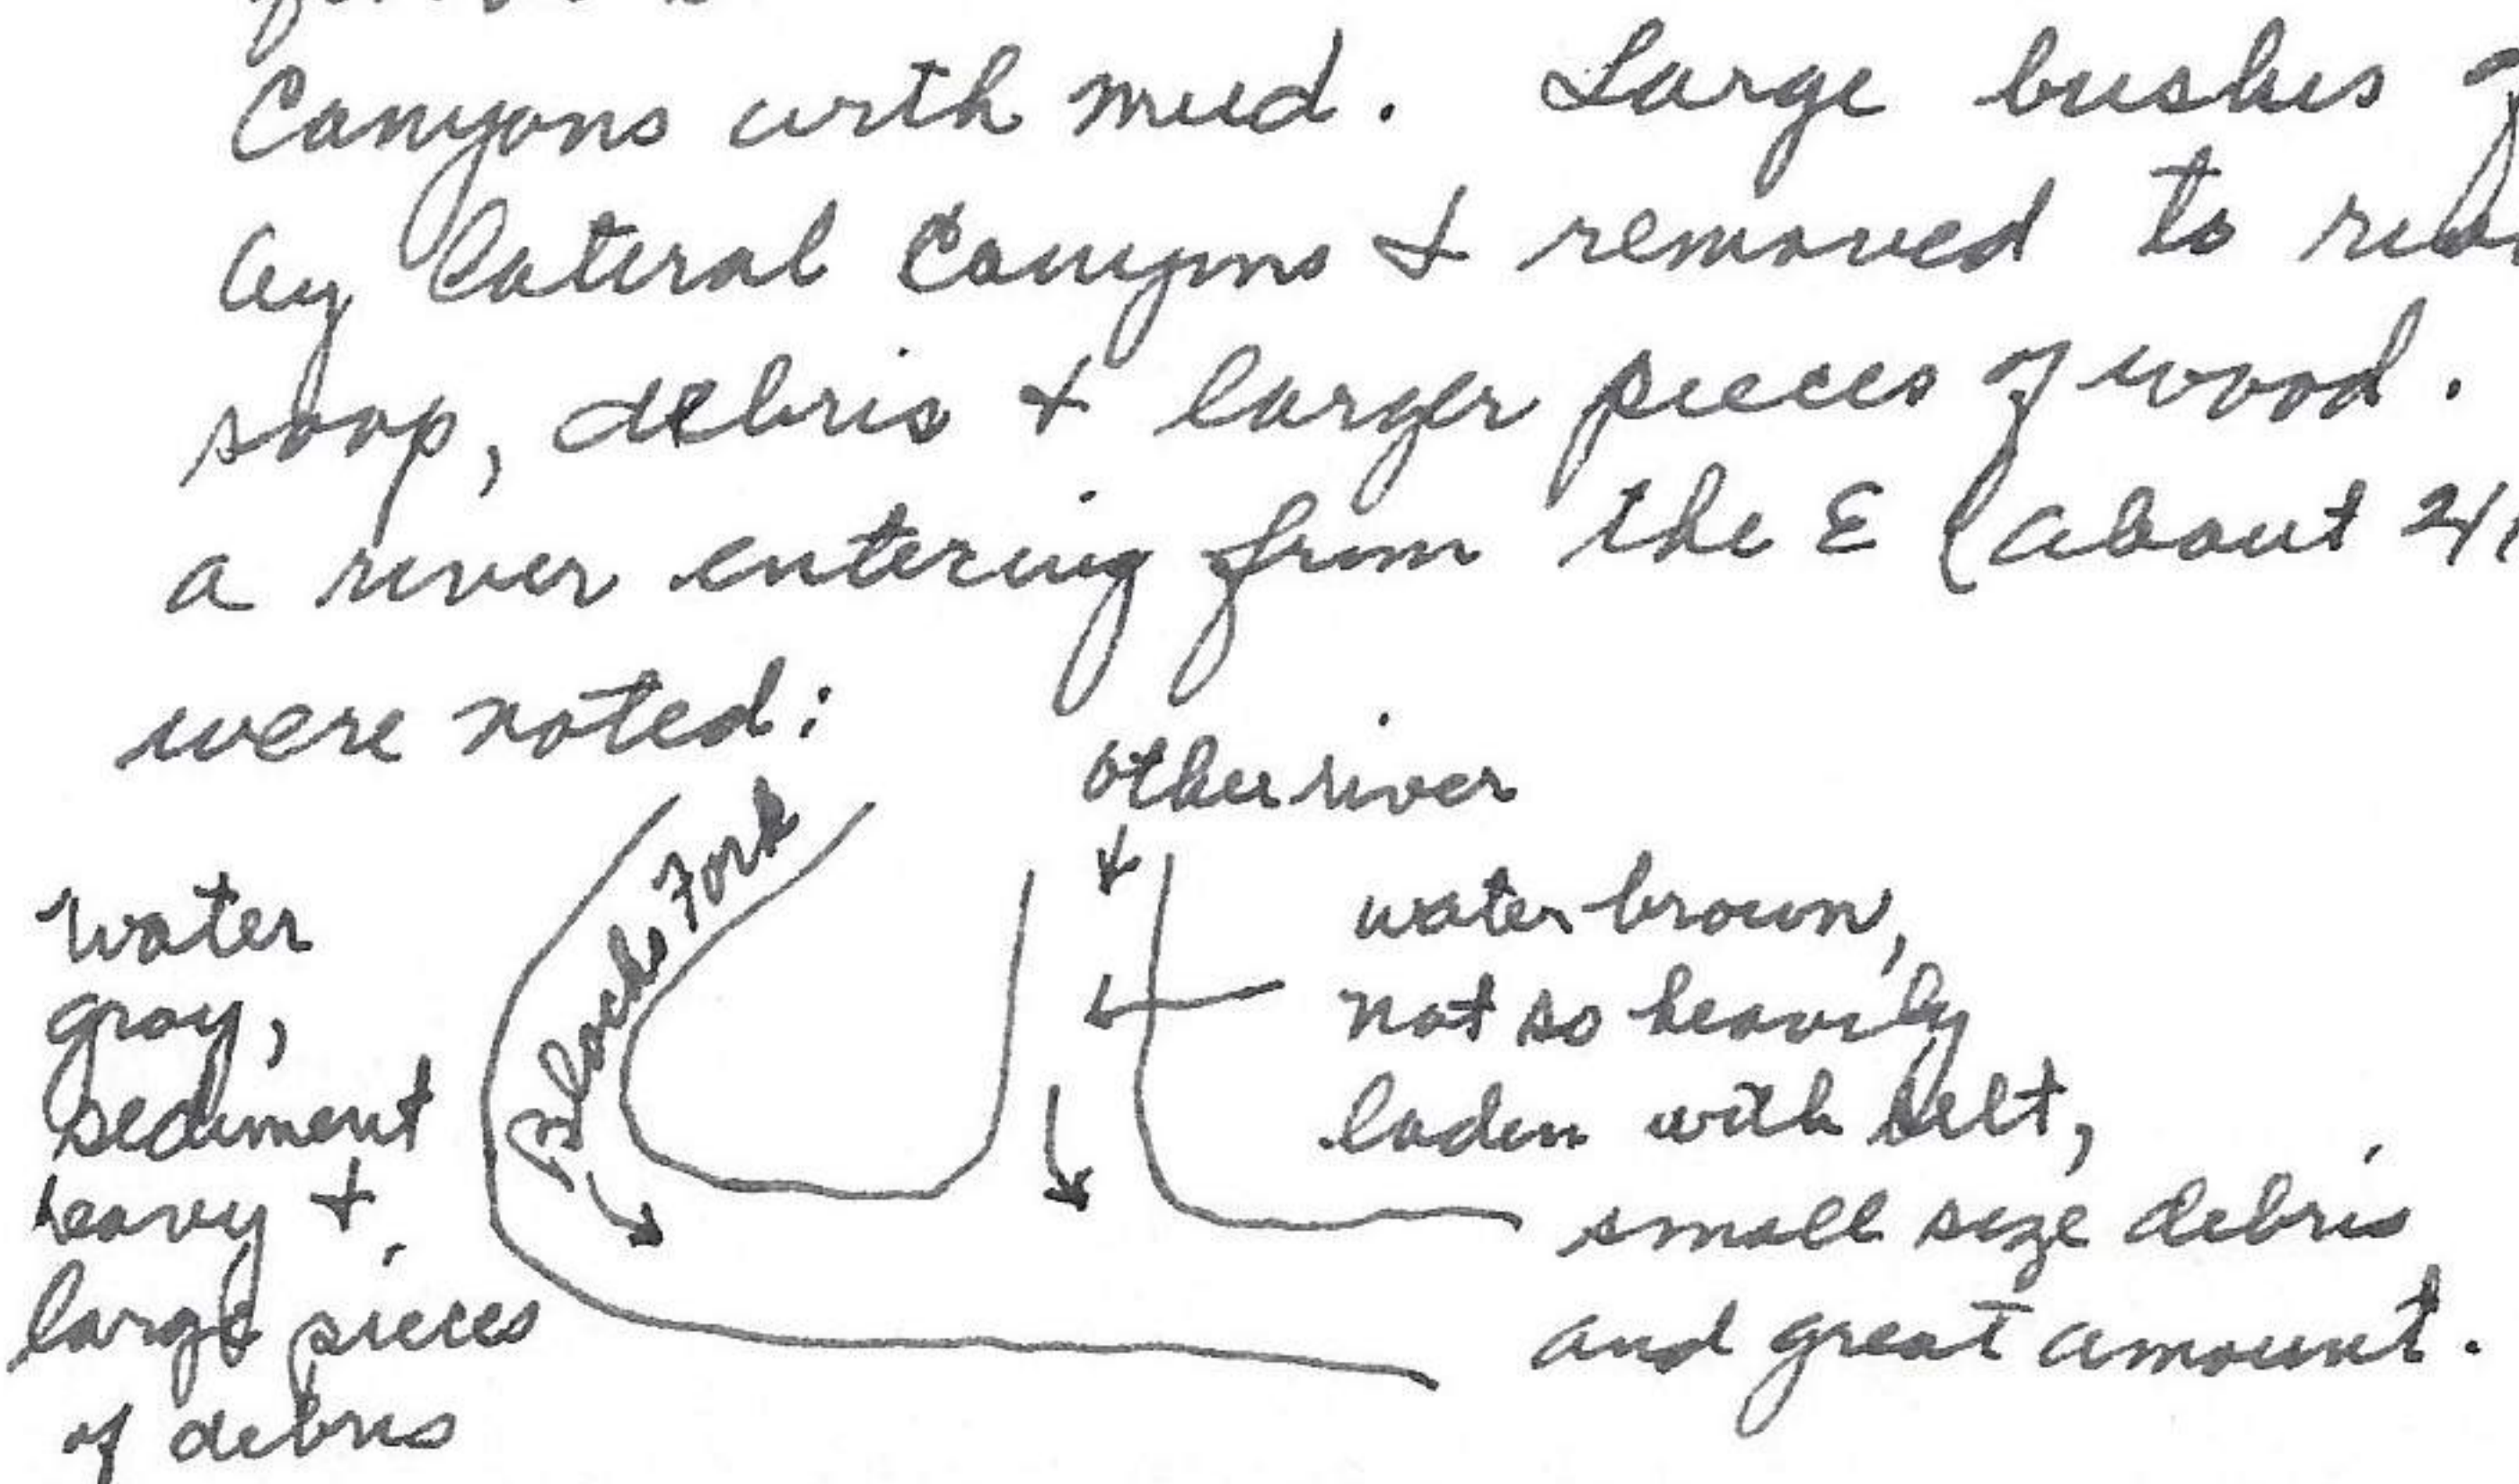 Canyons with mud. Large bushes
by lateral Canyons + removed to
soap, debris + larger pieces of wood.
a river entering from the E (about
were noted:
other river
Black Fork
water
gray,
sediment
heavy +
large pieces
of debris
water brown,
not so heavily
laden with silt,
small size debris
and great amount.